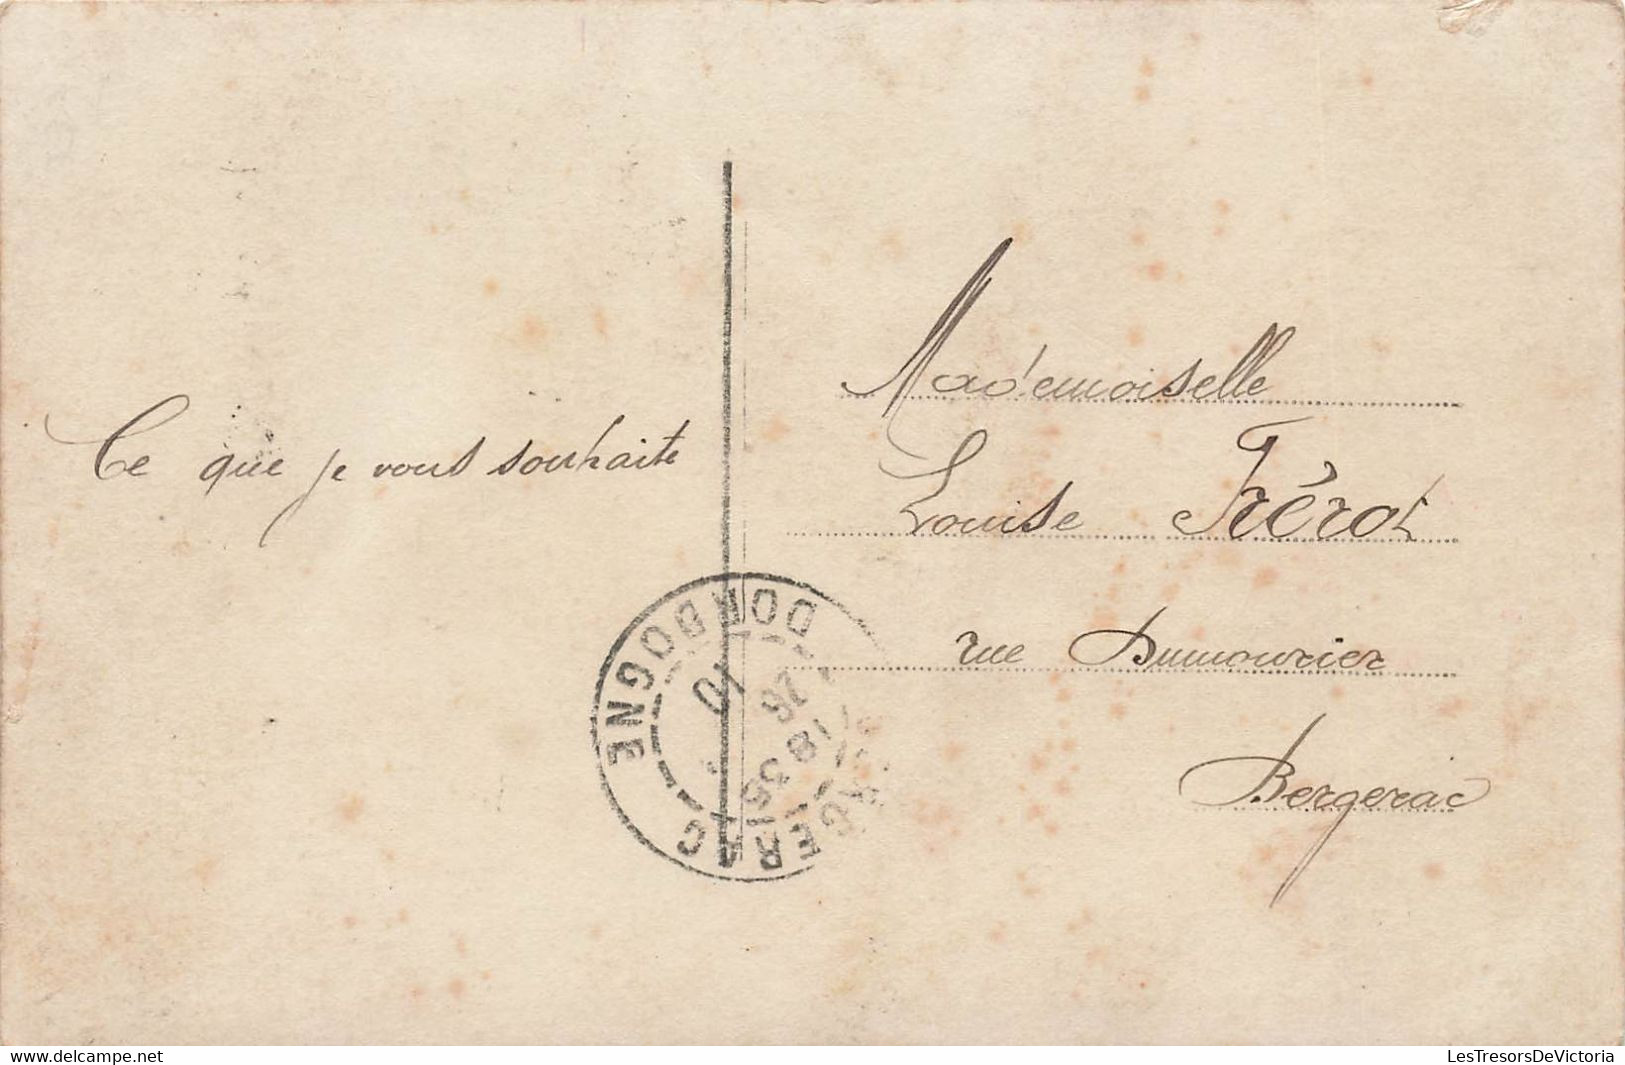 Ce que je vous souhaite
Mademoiselle
Louise Frérot
rue Dumourier
Bergerac
BERGERAC
DORDOGNE
18 35
26
10
delcampe.net
LesTresorsDeVictoria